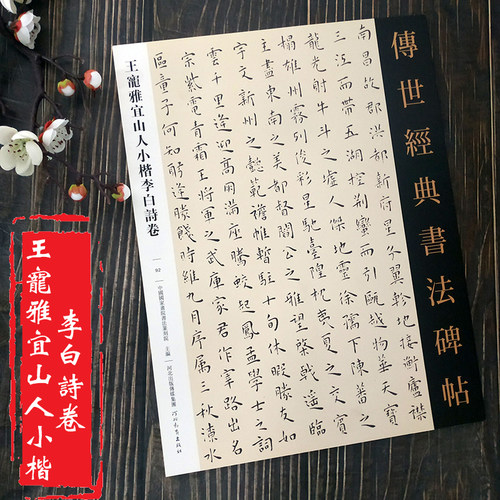 傳世經典書法碑帖
南昌故郡洪都新府星分翼軫地接衡廬襟
三江而帶五湖控荊蠻而引甌越物華天寶
龍光射牛斗之墟人傑地靈徐孺下陳蕃之
榻雄州霧列俊彩星馳臺隍枕夷夏之交賓
主盡東南之美都督閻公之雅望棨戟遙臨
宇文新州之懿範襜帷暫駐十旬休暇勝友如
雲千里逢迎高朋滿座騰蛟起鳳孟學士之詞
宗紫電青霜王將軍之武庫家君作宰路出名
區童子何知躬逢勝餞時維九月序屬三秋潦水
王寵雅宜山人小楷李白詩卷
主編
河北出版傳媒集團
河北教育出版社
李白詩卷
王寵雅宜山人小楷